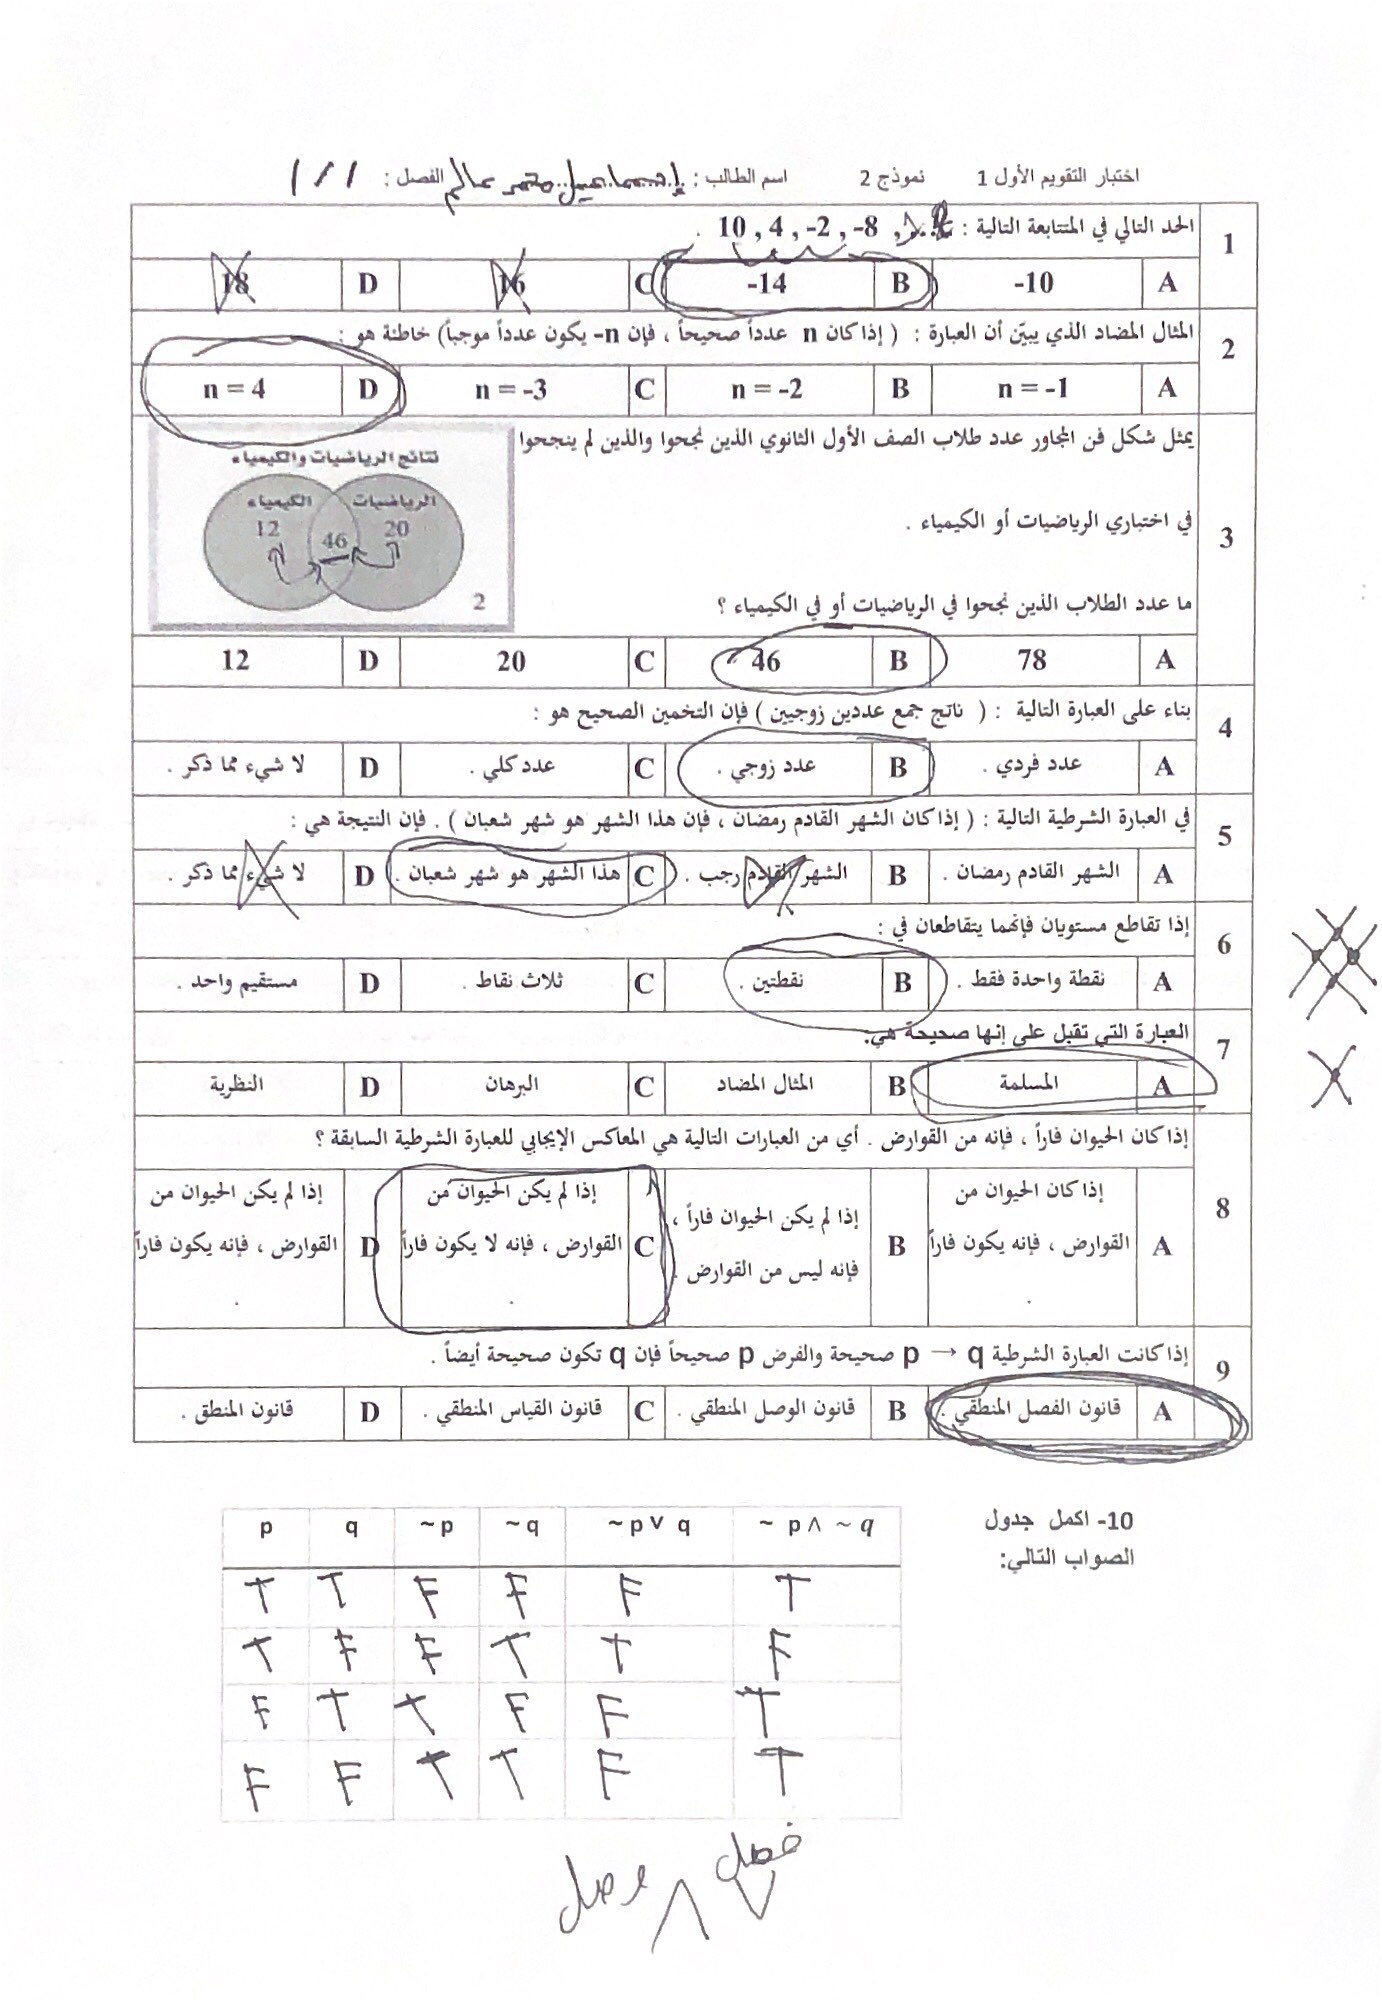 اختبار التقويم الأول 1 نموذج 2 اسم الطالب : إسماعيل محمد سالم الفصل : 1/1
1 الحد التالي في المتتابعة التالية : 10 , 4 , -2 , -8 ,
A -10 B -14 C 16 D 18
2 المثال المضاد الذي يبيّن أن العبارة : ( إذا كان n عدداً صحيحاً ، فإن n- يكون عدداً موجباً) خاطئة هو :
A n = -1 B n = -2 C n = -3 D n = 4
3 يمثل شكل فن المجاور عدد طلاب الصف الأول الثانوي الذين نجحوا والذين لم ينجحوا
في اختباري الرياضيات أو الكيمياء .
ما عدد الطلاب الذين نجحوا في الرياضيات أو في الكيمياء ؟
نتائج الرياضيات والكيمياء
الرياضيات الكيمياء
20 46 12
2
A 78 B 46 C 20 D 12
4 بناء على العبارة التالية : ( ناتج جمع عددين زوجيين ) فإن التخمين الصحيح هو :
A عدد فردي . B عدد زوجي . C عدد كلي . D لا شيء مما ذكر .
5 في العبارة الشرطية التالية : ( إذا كان الشهر القادم رمضان ، فإن هذا الشهر هو شهر شعبان ) . فإن النتيجة هي :
A الشهر القادم رمضان . B الشهر القادم رجب . C هذا الشهر هو شهر شعبان . D لا شيء مما ذكر .
6 إذا تقاطع مستويان فإنهما يتقاطعان في :
A نقطة واحدة فقط . B نقطتين . C ثلاث نقاط . D مستقيم واحد .
7 العبارة التي تقبل على إنها صحيحة هي:
A المسلمة B المثال المضاد C البرهان D النظرية
8 إذا كان الحيوان فاراً ، فإنه من القوارض . أي من العبارات التالية هي المعاكس الإيجابي للعبارة الشرطية السابقة ؟
A إذا كان الحيوان من القوارض ، فإنه يكون فاراً .
B إذا لم يكن الحيوان فاراً ، فإنه ليس من القوارض .
C إذا لم يكن الحيوان من القوارض ، فإنه لا يكون فاراً .
D إذا لم يكن الحيوان من القوارض ، فإنه يكون فاراً .
9 إذا كانت العبارة الشرطية p → q صحيحة والفرض p صحيحاً فإن q تكون صحيحة أيضاً .
A قانون الفصل المنطقي . B قانون الوصل المنطقي . C قانون القياس المنطقي . D قانون المنطق .
10- اكمل جدول
الصواب التالي:
p q ~p ~q ~p ∨ q ~ p ∧ ~ q
T T F F F T
T F F T T F
F T T F F T
F F T T F T
فصل ∨
وصل ∧